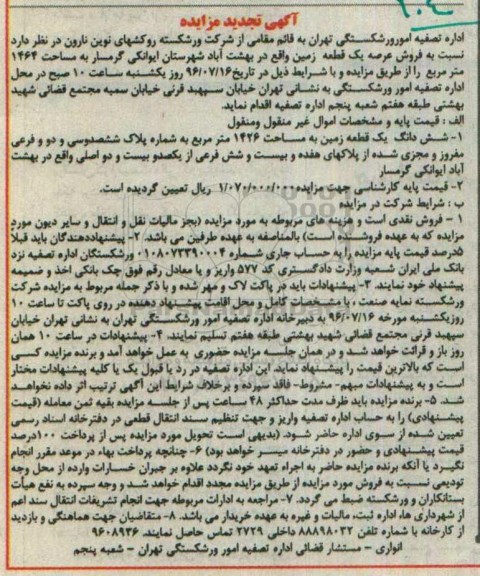 ۲۰۴
آگهی تجدید مزایده
اداره تصفیه امورورشکستگی تهران به قائم مقامی از شرکت ورشکسته روکشهای نوین نارون در نظر دارد
نسبت به فروش عرصه یک قطعه زمین واقع در بهشت آباد شهرستان ایوانکی گرمسار به مساحت ۱۴۶۴
متر مربع را از طریق مزایده و با شرایط ذیل در تاریخ۹۶/۰۷/۱۶ روز یکشنبه ساعت ۱۰ صبح در محل
اداره تصفیه امور ورشکستگی به نشانی تهران خیابان سپهبد قرنی خیابان سمیه مجتمع قضائی شهید
بهشتی طبقه هفتم شعبه پنجم اداره تصفیه اقدام نماید.
الف : قیمت پایه و مشخصات اموال غیر منقول ومنقول
۱- شش دانگ یک قطعه زمین به مساحت ۱۴۲۶ متر مربع به شماره پلاک ششصدوسی و دو و فرعی
مفروز و مجزی شده از پلاکهای هفده و بیست و شش فرعی از یکصدو بیست و دو اصلی واقع در بهشت
آباد ایوانکی گرمسار
۲- قیمت پایه کارشناسی جهت مزایده۱/۰۷۰/۰۰۰/۰۰۰ ریال تعیین گردیده است.
ب : شرایط شرکت در مزایده
۱ – فروش نقدی است و هزینه های مربوطه به مورد مزایده (بجز مالیات نقل و انتقال و سایر دیون مورد
مزایده که به عهده فروشنده است) بالمناصفه به عهده طرفین می باشد. ۲- پیشنهاددهندگان باید قبلاً
۵درصد قیمت پایه مزایده را به حساب جاری شماره ۰۱۰۸۰۷۳۳۹۰۰۰۴ ورشکستگان اداره تصفیه نزد
بانک ملی ایران شعبه وزارت دادگستری کد ۵۷۷ واریز و یا معادل رقم فوق چک بانکی اخذ و ضمیمه
پیشنهاد خود نمایند. ۳- پیشنهادات باید در پاکت لاک و مهر شده و با ذکر جمله مربوط به مزایده شرکت
ورشکسته نمایه صنعت ، با مشخصات کامل و محل اقامت پیشنهاد دهنده در روی پاکت تا ساعت ۱۰
روزیکشنبه مورخه ۹۶/۰۷/۱۶ به دبیرخانه اداره تصفیه امور ورشکستگی تهران به نشانی تهران خیابان
سپهبد قرنی مجتمع قضائی شهید بهشتی طبقه هفتم تسلیم نمایند. ۴- پیشنهادات در ساعت ۱۰ همان
روز باز و قرائت خواهد شد و در همان جلسه مزایده حضوری به عمل خواهد آمد و برنده مزایده کسی
است که بالاترین قیمت را پیشنهاد نماید. این اداره تصفیه در رد یا قبول یک یا کلیه پیشنهادات مختار
است و به پیشنهادات مبهم- مشروط- فاقد سپرده و برخلاف شرایط این آگهی ترتیب اثر داده نخواهد
شد. ۵- برنده مزایده باید ظرف مدت حداکثر ۴۸ ساعت پس از جلسه مزایده بقیه ثمن معامله (قیمت
پیشنهادی) را به حساب اداره تصفیه واریز و جهت تنظیم سند انتقال قطعی در دفترخانه اسناد رسمی
تعیین شده از سوی اداره حاضر شود. (بدیهی است تحویل مورد مزایده پس از پرداخت ۱۰۰درصد
قیمت پیشنهادی و حضور در دفترخانه میسر خواهد بود) ۶- چنانچه پرداخت بهاء در موعد مقرر انجام
نگیرد یا آنکه برنده مزایده حاضر به اجراء تعهد خود نگردد علاوه بر جبران خسارات وارده از محل وجه
تودیعی نسبت به فروش مورد مزایده از طریق مزایده مجدد اقدام خواهد شد و وجه سپرده به نفع هیأت
بستانکاران و ورشکسته ضبط می گردد. ۷- مراجعه به ادارات مربوطه جهت انجام تشریفات انتقال سند اعم
از شهرداری ها، اداره ثبت، مالیات و غیره به عهده خریدار می باشد. ۸- متقاضیان جهت هماهنگی و بازدید
از کارخانه با شماره تلفن ۸۸۸۹۸۰۳۲ داخلی ۲۷۲۹ تماس حاصل نمایند. ۹۶۰۸۹۳۶
انواری – مستشار قضائی اداره تصفیه امور ورشکستگی تهران – شعبه پنجم